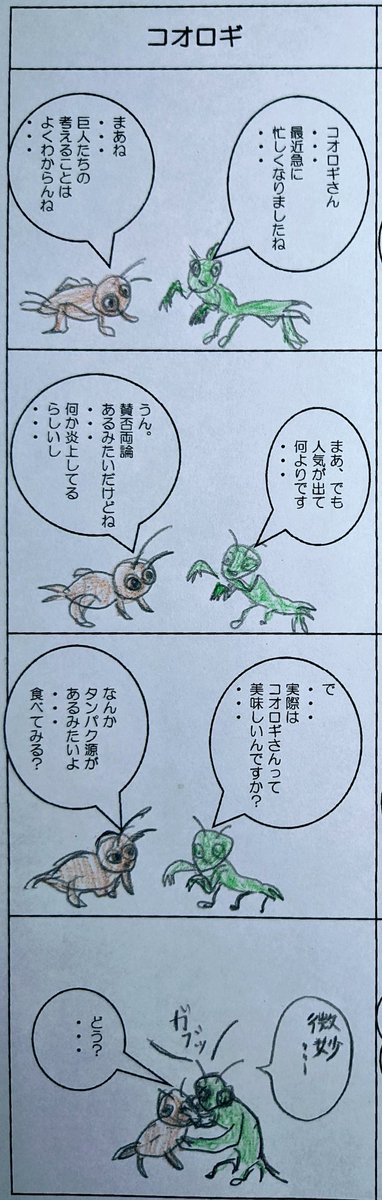 コオロギ
コオロギさん
・・・
最近急に
忙しくなりましたね
・・・
まあね
・・・
巨人たちの
考えることは
よくわからんね
・・・
まあ、でも
人気が出て
何よりです
・・・
うん。
賛否両論
あるみたいだけどね
・・・
何か炎上してる
らしいし
・・・
で
・・・
実際は
コオロギさんって
美味しいんですか?
・・・
なんか
タンパク源が
あるみたいよ
・・・
食べてみる?
微妙…
ガブッ
どう?
・・・